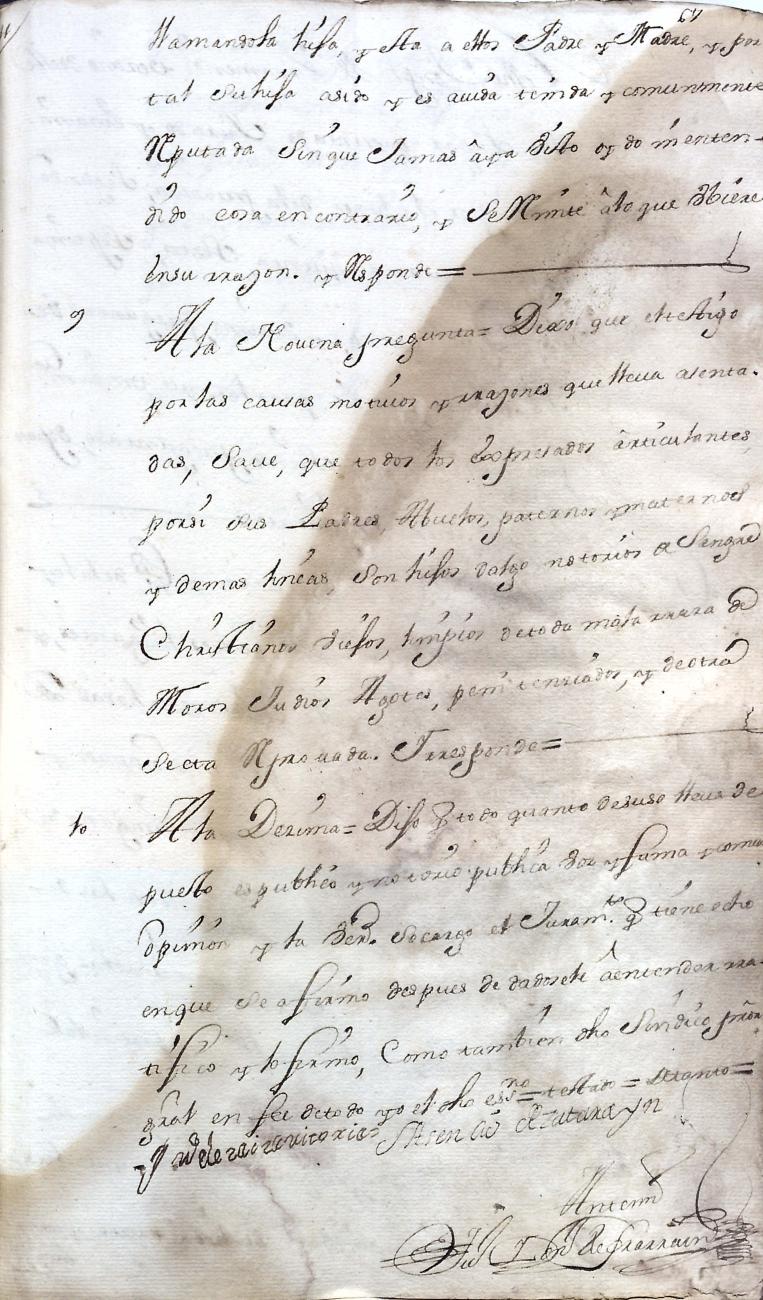 llamandola hija, y esta a ellos Padre y Madre, y por
tal su hija asido y es auida tenida y comunmente
Reputada sin que Jamas âya visto oydo ni enten-
dido cosa en contrario, y se Rmite âlo que Ubiere
en su rrazon. y Responde=
9 A la Nouena pregunta= Dixo que el testigo
por las causas motiuos y rrazones que lleua asenta-
das, saue, que todos los expresados ârticulantes,
por si sus Padres, Abuelos, paternos y maternos
y demas lineas, son hijos dalgo notorios de Sangre
Christianos viejos, limpios de toda mala rraza de
Moros Judios Agotes, penitenziados, y de otra
Secta Reprouada. Y rresponde=
10 A la Dezima= Dijo q todo quanto desuso lleua de
puesto es publico y notorio publica voz y fama y comun
ôpinion y la Verd. so cargo el Juram.to q tiene echo
en que se afirmo despues de dadosele â entender rra-
tifico y lo firmo, Como tambien dho Sindico pror
gral en fee de todo yo el dho ess.no= testado= Atanto=
Asencio
Antemi